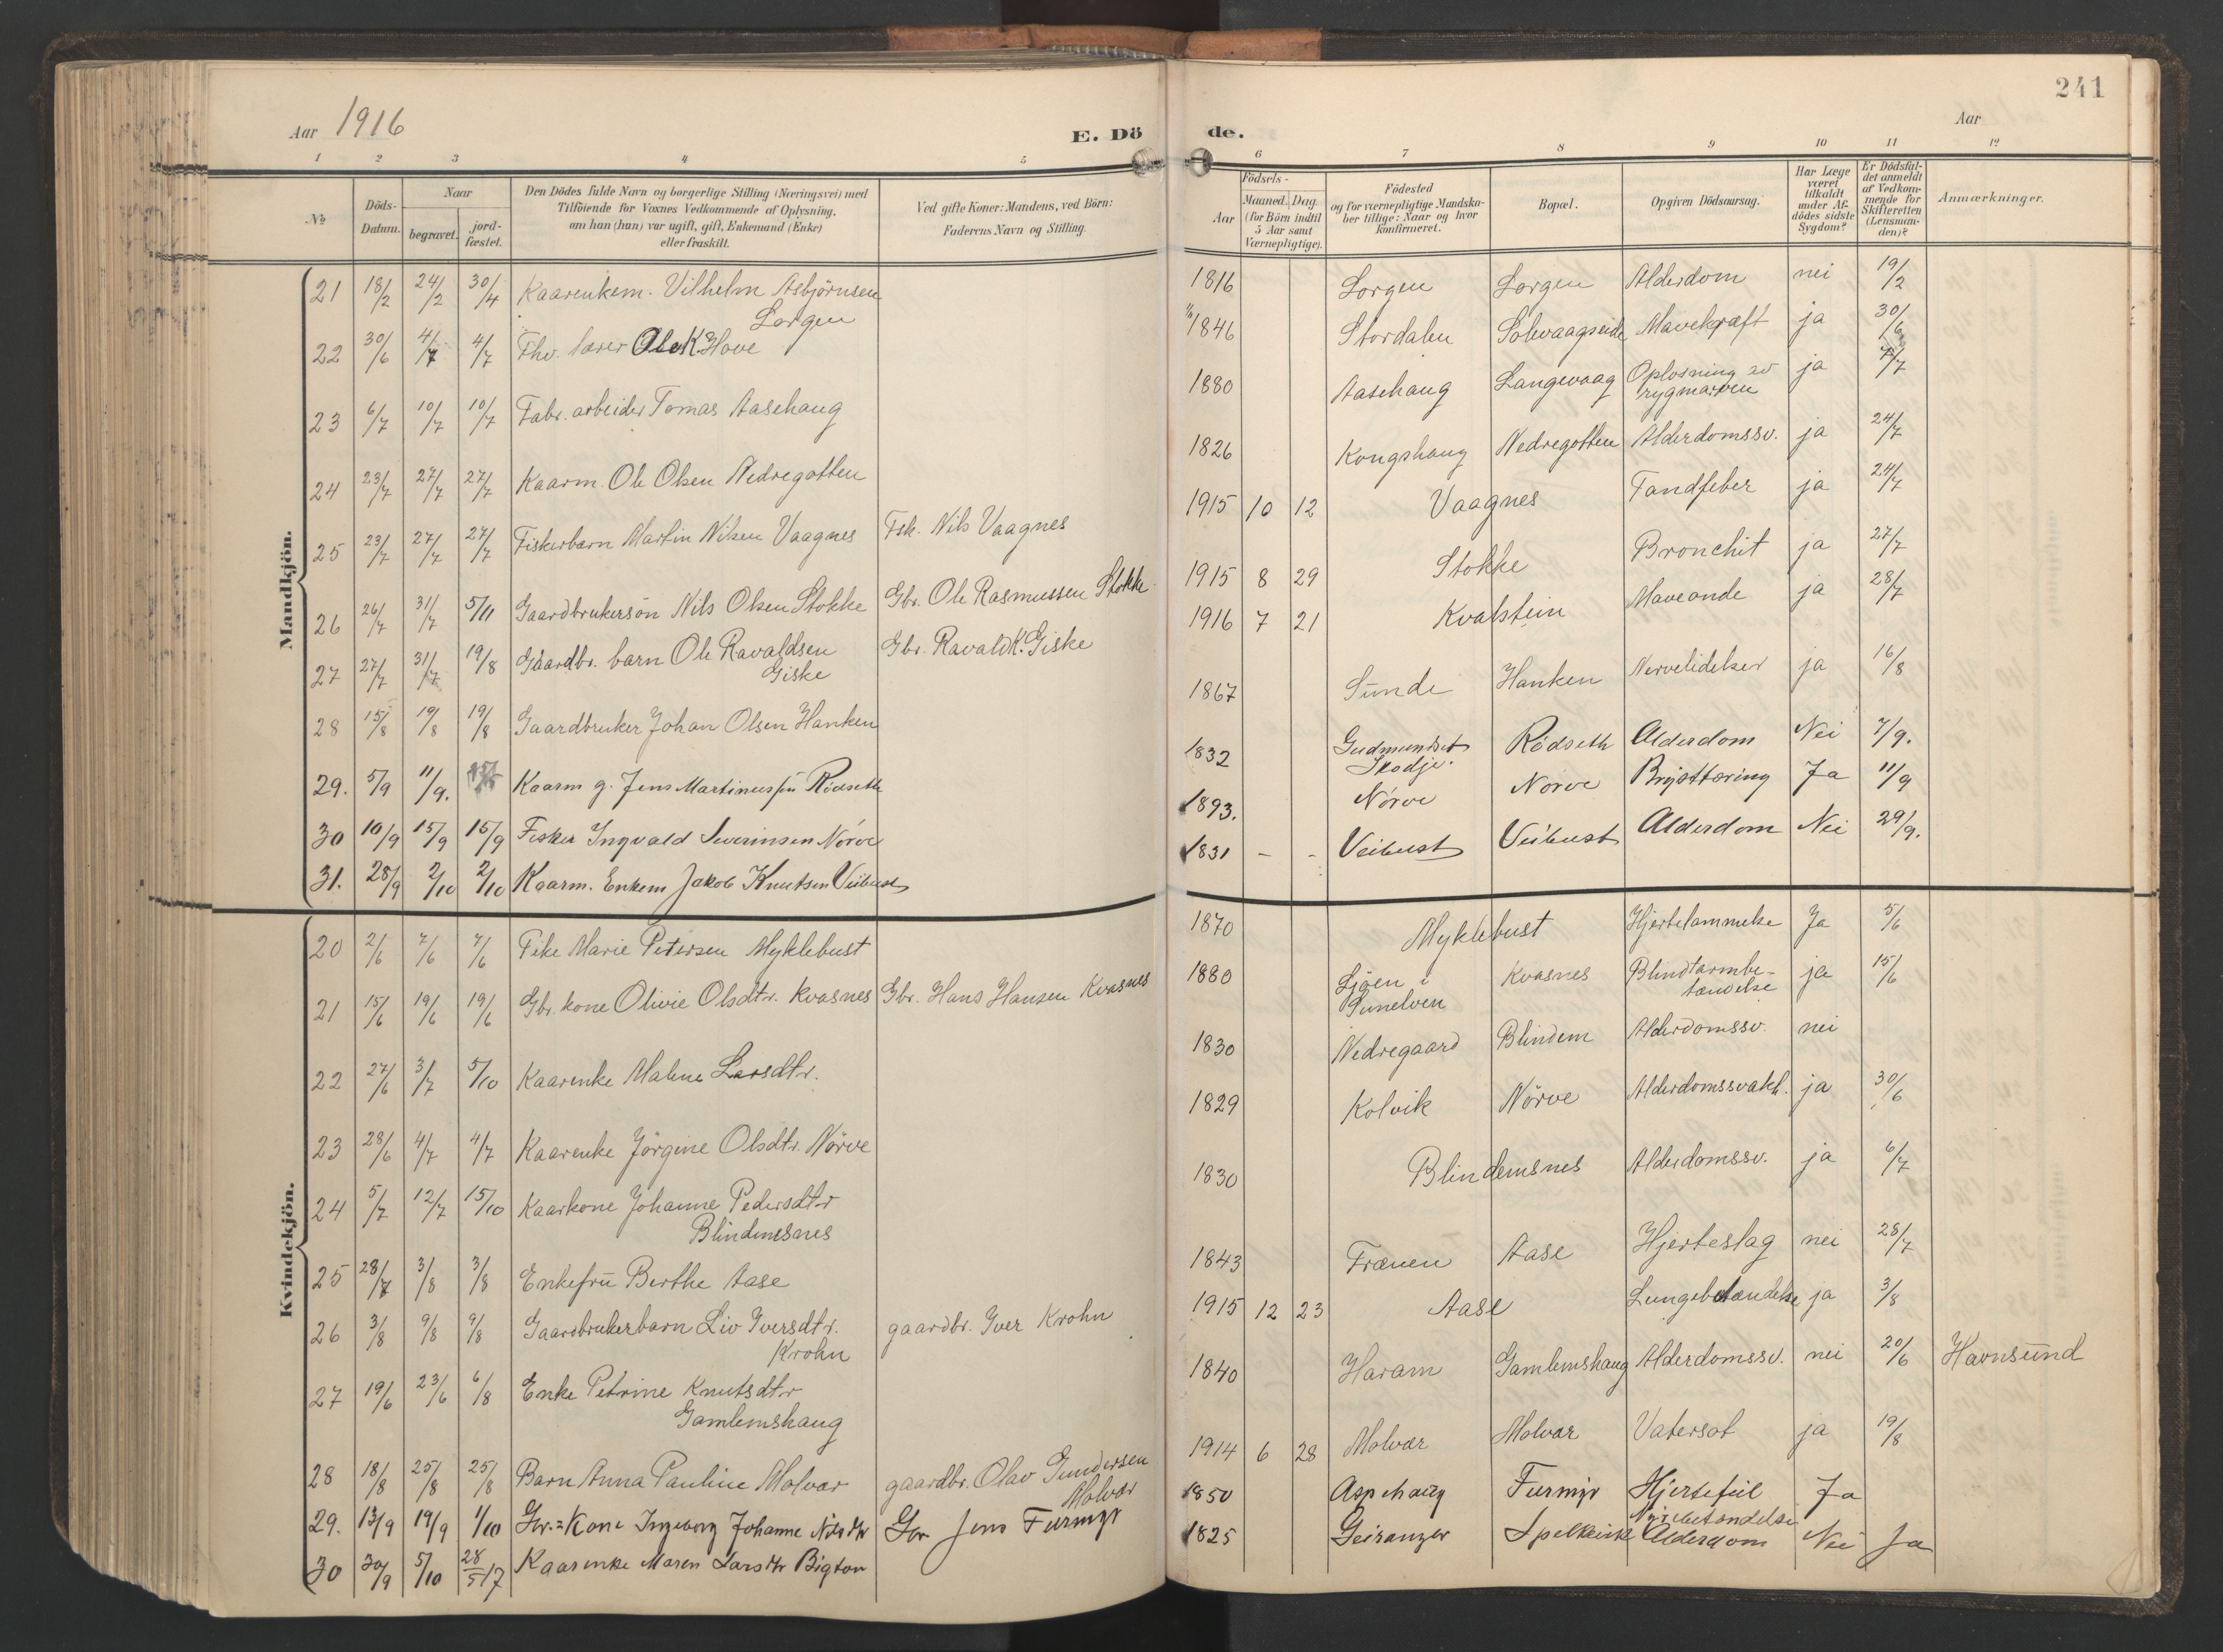 241
Aar 1916
E. Döde.
Aar
1 2 3 4 5 6 7 8 9 10 11 12
No
Döds-Datum.
Naar
begravet.
jord-fæstet.
Den Dödes fulde Navn og borgerlige Stilling (Næringsvei) med
Tilföiende for Voxnes Vedkommende af Oplysning,
om han (hun) var ugift, gift, Enkemand (Enke)
eller fraskilt.
Ved gifte Koner: Mandens, ved Börn:
Faderens Navn og Stilling.
Födsels-
Aar
Maaned. Dag.
(for Börn indtil
5 Aar samt
Værnepligtige).
Födested
og for værnepligtige Mandska-
ber tillige: Naar og hvor
konfirmeret.
Bopæl.
Opgiven Dödsaarsag.
Har Læge
været
tilkaldt
under Af-
dödes sidste
Sygdom?
Er Dödsfal-
det anmeldt
af Vedkom-
mende for
Skifteretten
(Lensman-
den)?
Anmærkninger.
Mandkjön.
21 18/2 24/2 30/4 Kaarenkem. Vilhelm Asbjörnsen Lorgen 1816 Lorgen Lorgen Alderdom nei 19/2
22 30/6 4/7 4/7 Fhv. lærer Ole K. Hove 1846 Stordalen Solevaagseide Mavekræft ja 30/6
23 6/7 10/7 10/7 Fabr. arbeider Tomas Aasehaug 1880 Aasehaug Langevaag Oplosning av rygmarven ja 7/7
24 23/7 27/7 27/7 Kaarm. Ole Olsen Nedregotten 1826 Kongshaug Nedregotten Alderdomssv. ja 24/7
25 23/7 27/7 27/7 Fiskerbarn Martin Nilsen Vaagnes Fsk. Nils Vaagnes 1915 10 12 Vaagnes Tandfeber ja 24/7
26 26/7 31/7 5/11 Gaardbrukersön Nils Olsen Stokke Gbr. Ole Rasmussen Stokke 1915 8 29 Stokke Bronchit ja 27/7
27 27/7 31/7 19/8 Gaardbr. barn Ole Ravaldsen Giske Gbr. Ravald K. Giske 1916 7 21 Kvalstein Maveonde ja 28/7
28 15/8 19/8 19/8 Gaardbruker Johan Olsen Hanken 1867 Sunde Hanken Nervelidelser ja 16/8
29. 5/9 11/9. Kaarm g. Jens Martinussen Rödseth 1832 Gudmundset Skodje. Rödseth Alderdom Nei 7/9.
30 10/9 15/9 15/9 Fisker Ingvald Severinsen Nörve 1893. Nörve Nörve Brysttæring Ja 11/9
31. 28/9 2/10 2/10 Kaarm. Enkem Jakob Knutsen Veibust 1831 - - Veibust Veibust Alderdom Nei 29/9.
Kvindekjön.
20 2/6 7/6 7/6 Pike Marie Petersen Myklebust 1870 Myklebust Hjertelammelse Ja 5/6
21 15/6 19/6 19/6 Gbr. kone Olivie Olsdtr. Kvasnes Gbr. Hans Hansen Kvasnes 1880 Ljöen i Sunelven Kvasnes Blindtarmbe-tændelse ja 15/6
22 27/6 3/7 5/10 Kaarenke Malene Larsdtr. 1830 Nedregaard Blindem Alderdomssv. nei
23 28/6 4/7 4/7 Kaarenke Jörgine Olsdtr. Nörve 1829 Kolvik Nörve Alderdomssvakh. ja 30/6
24 5/7 12/7 15/10 Kaarkone Johanne Pedersdtr Blindemsnes 1830 Blindemsnes Alderdomssv. ja 6/7
25 28/7 3/8 3/8 Enkefru Berthe Aase 1843 Frænen Aase Hjerteslag nei 28/7
26 3/8 9/8 9/8 Gaardbrukerbarn Liv Iversdtr. Krohn gaardbr. Iver Krohn 1915 12 23 Aase Lungebetændelse ja 3/8
27 19/6 23/6 6/8 Enke Petrine Knutsdtr Gamlemshaug 1840 Haram Gamlemshaug Alderdomssv. nei 20/6 Havnsund
28 18/8 25/8 25/8 Barn Anna Pauline Molvær gaardbr. Olav Gundersen Molvær 1914 6 28 Molvær Molvær Vatersot ja 19/8
29. 13/9 19/9 1/10 Gr.=Kone Ingeborg Johanne Nilsdtr Gr Jens Furmyr 1850 Aspehaug Furmyr Hjertefeil Nyrebetændelse Ja
30 30/9 5/10 28/5 17 Kaarenke Maren Larsdtr Bigton 1825 Geiranger Spelkavik Alderdom Nei Ja